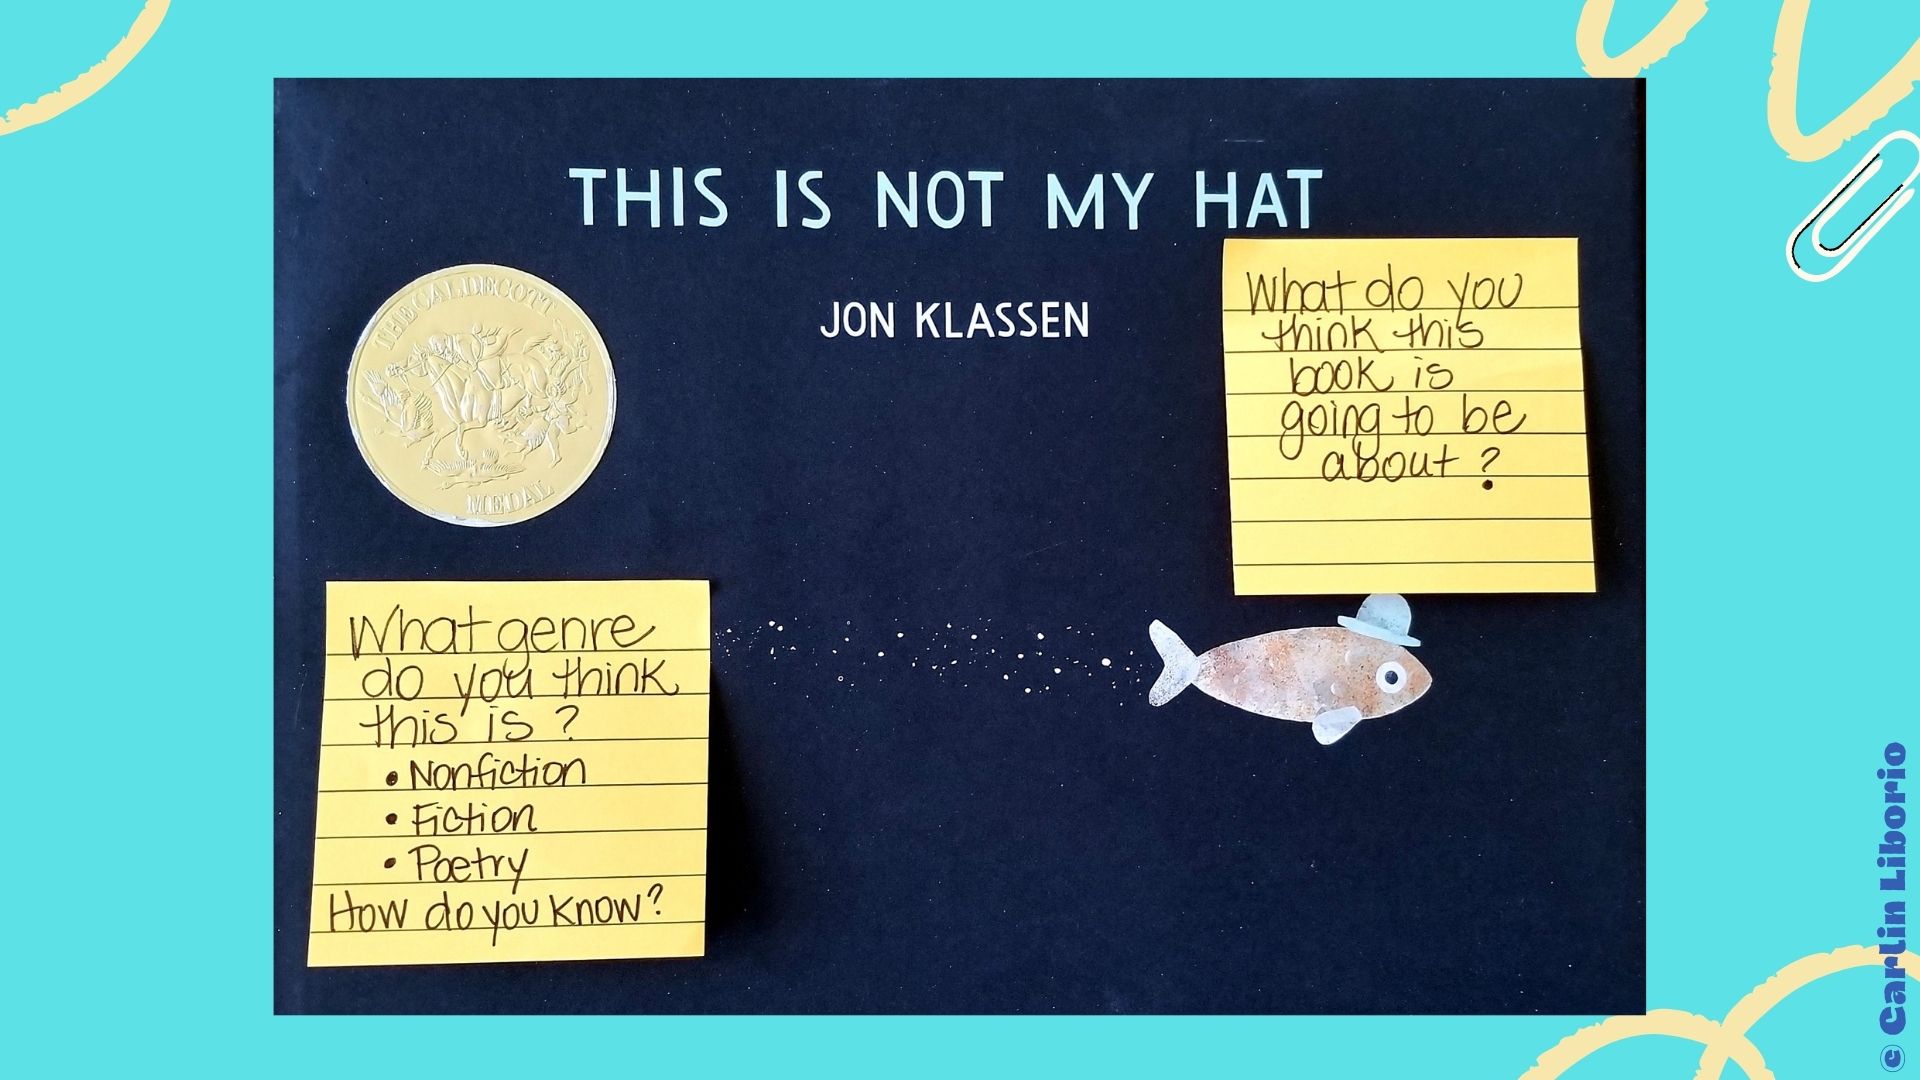 THIS IS NOT MY HAT
JON KLASSEN
THE CALDECOTT
MEDAL
What do you
think this
book is
going to be
about?
What genre
do you think
this is?
• Nonfiction
• Fiction
• Poetry
How do you know?
© Carlin Liborio